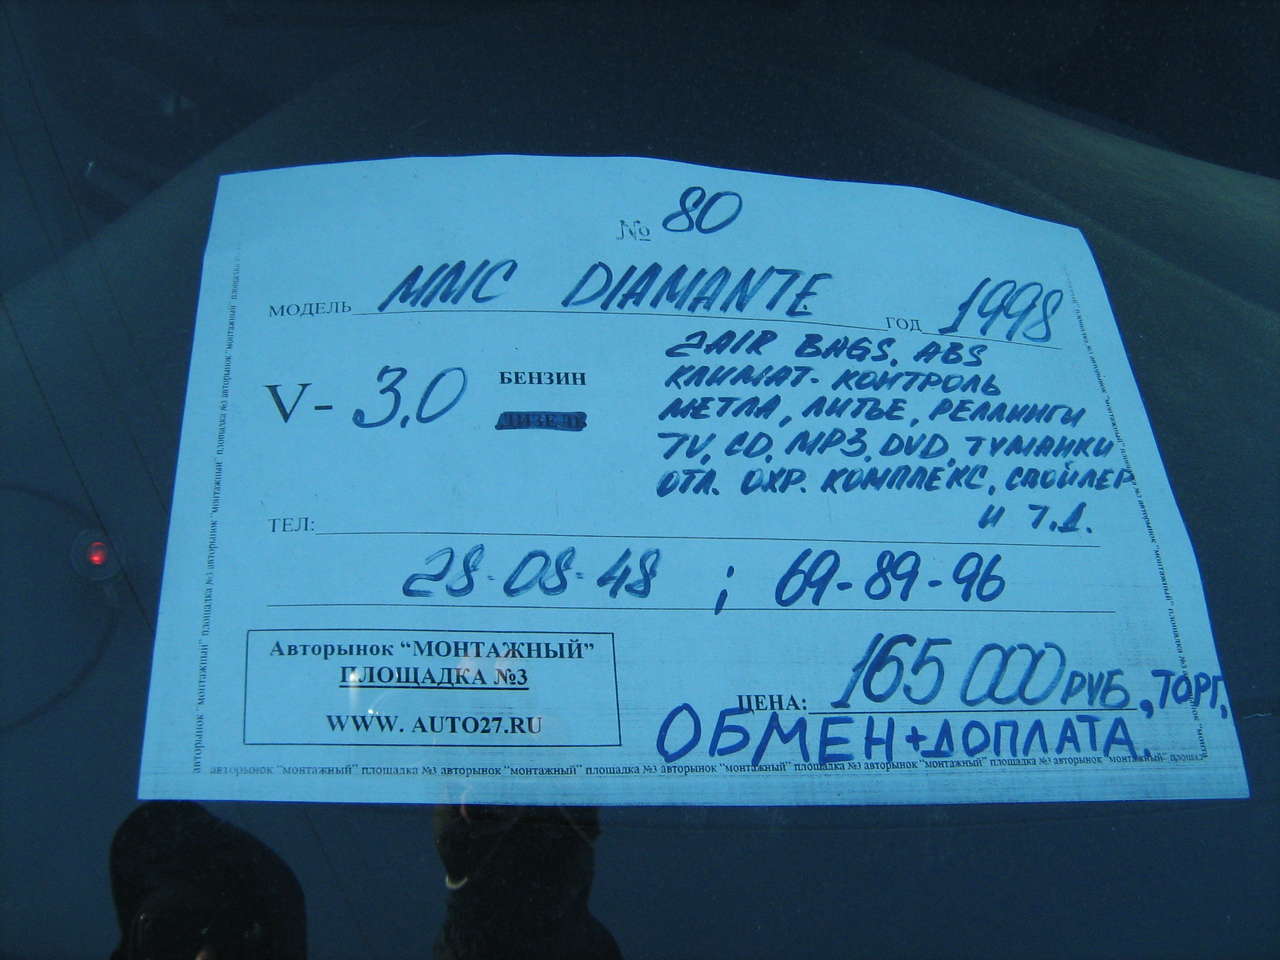 № 80
МОДЕЛЬ ММС DIAMANTE ГОД 1998
2 AIR BAGS, ABS
КЛИМАТ-КОНТРОЛЬ
V- 3.0 БЕНЗИН
МЕТЛА, ЛИТЬЕ, РЕЛЛИНГИ
ДИЗЕЛЬ
TV, CD, MP3, DVD, ТУМАНКИ
ОТЛ. ОХР. КОМПЛЕКС, СПОЙЛЕР
И Т.Д.
ТЕЛ:
28-08-48 ; 69-89-96
Авторынок "МОНТАЖНЫЙ"
ПЛОЩАДКА №3
WWW. AUTO27.RU
ЦЕНА: 165 000 РУБ, ТОРГ,
ОБМЕН+ДОПЛАТА.
авторынок "монтажный" площадка №3 авторынок "монтажный" площадка №3 авторынок "монтажный" площадка №3 авторынок "монтажный" площадка №3